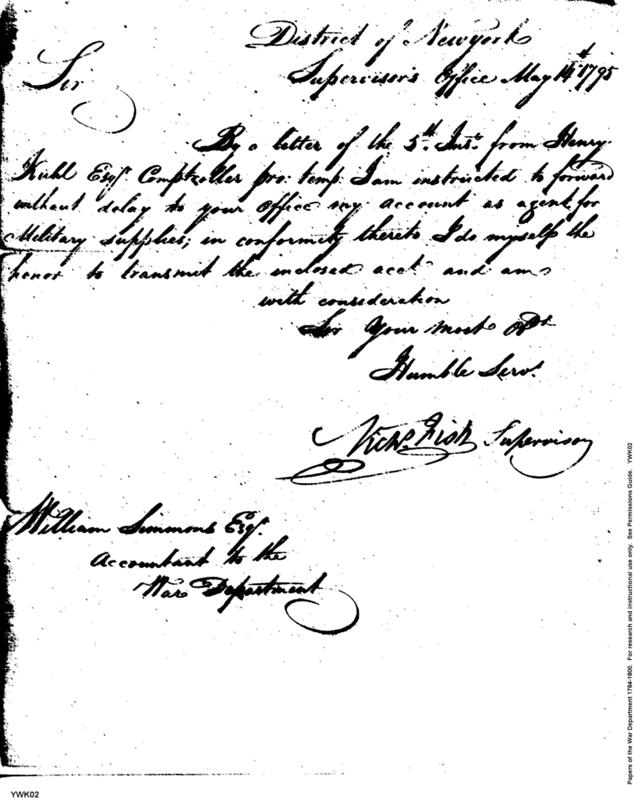 District of Newyork
Supervisor's Office May 14th 1795
Sir
By a letter of the 5th Inst. from Henry
Kuhl Esqr. Comptroller pro: temp: I am instructed to forward
without delay to your office my account as agent for
Military supplies; in conformity thereto I do myself the
honor to transmit the enclosed acct. and am
with consideration
Sir Your most Obt.
Humble Servt.
Nichs. Fish Supervisor
William Simmons Esqr.
Accountant to the
War Department
YWK02
Papers of the War Department 1784-1800. For research and instructional use only. See Permissions Guide. YWK02